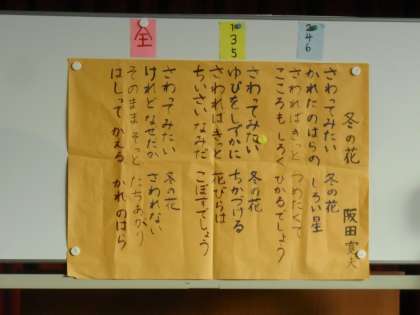 全
1
3
5
2
4
6
冬の花
阪田寛夫
さわってみたい 冬の花
かれたのはらの しろい星
さわればきっと つめたくて
こころもしろく ひかるでしょう
さわってみたい 冬の花
ゆびをしずかに ちかづける
さわればきっと 花びらは
ちいさいなみだ こぼすでしょう
さわってみたい 冬の花
けれどなぜだか さわれない
そのままそっと たちあがり
はしってかえる かれのはら